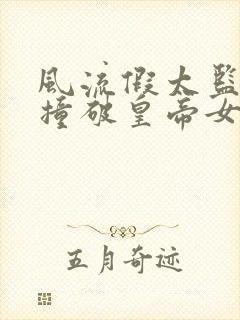 风流假太监
撞破皇帝女
五月奇迹